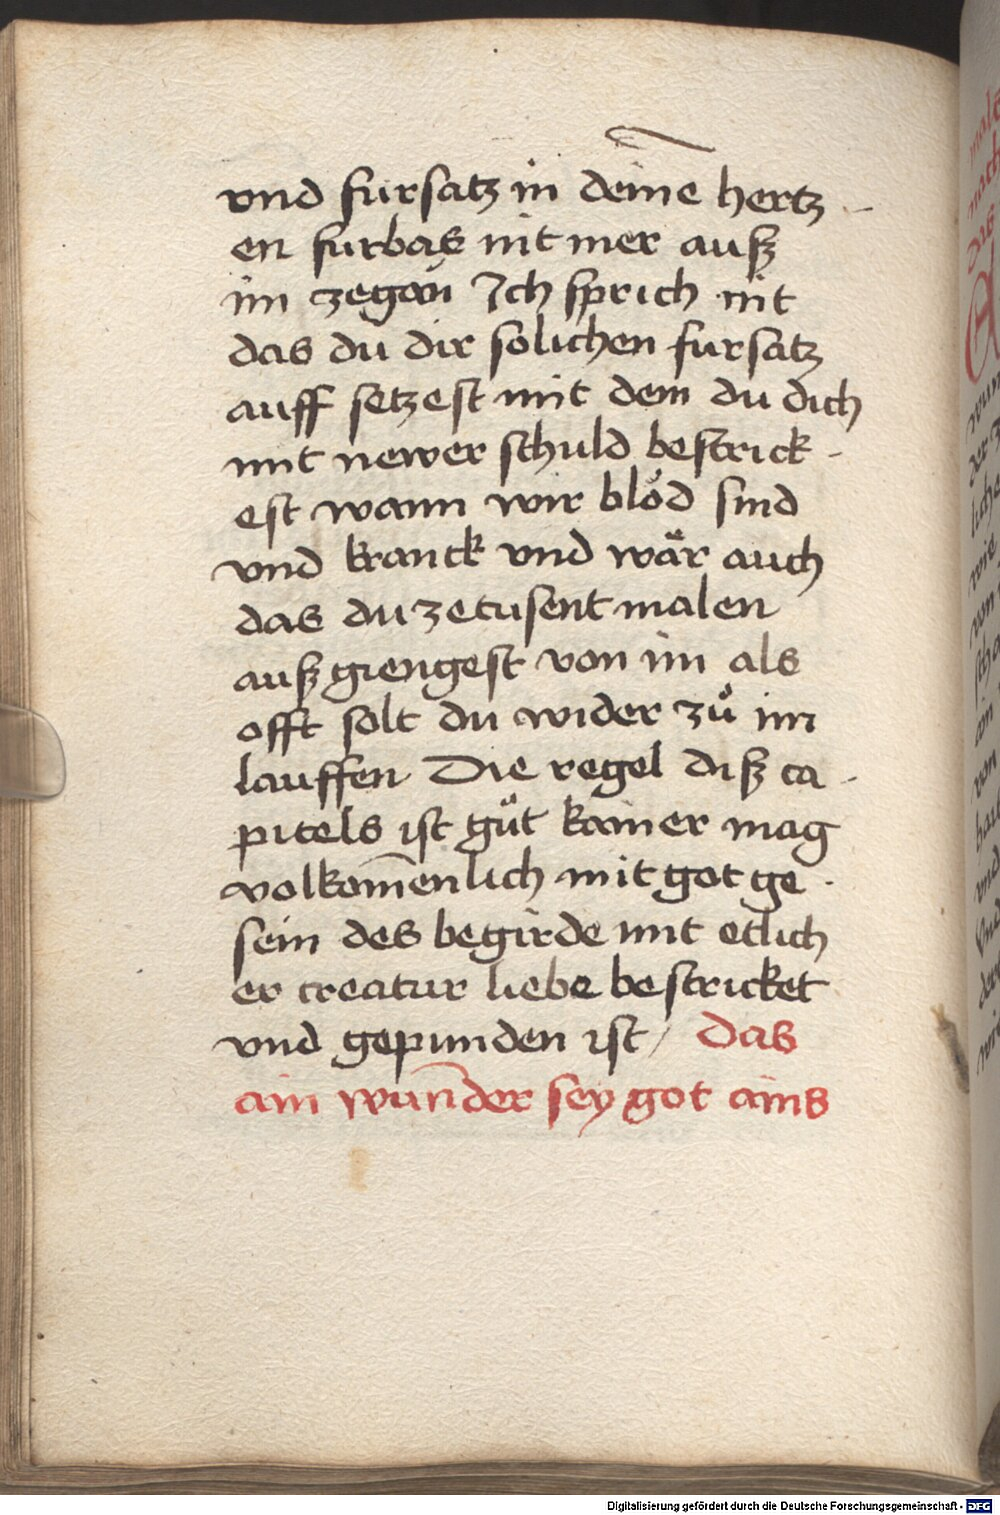 vnd fursatz in deine̅ hertz
en furbas nit mer auß
im zegan Ich sprich nit
das du dir solichen fursatz
auff setzest mit dem du dich
mit newer schuld bestrick-
est wann wir blöd sind
vnd kranck vnd wär auch
das du zetusent malen
auß giengest von im als
offt solt du wider zuͦ im
lauffen Die regel diß ca-
pitels ist guͦt kainer mag
volkom̅enlich mit got ge
sein des begirde mit etlich
er creatur liebe bestricket
vnd gepunden ist / Das
ain wun̅der sey got ains
Digitalisierung gefördert durch die Deutsche Forschungsgemeinschaft - DFG